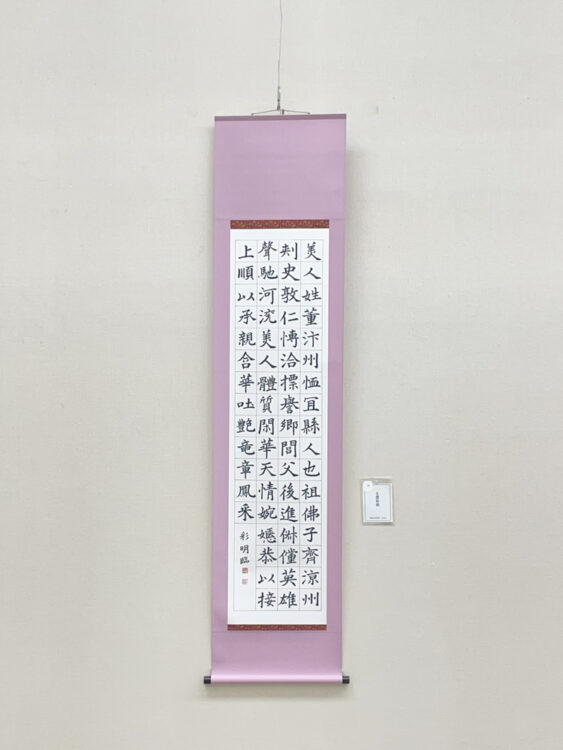 美人姓董汴州恤冝縣人也祖佛子齊涼州
刺史敦仁愽洽摽譽鄉閭父後進俶儻英雄
聲馳河浣美人體質閑華天情婉嫕恭以接
上順以承親含華吐艷竜章鳳采
彩明臨